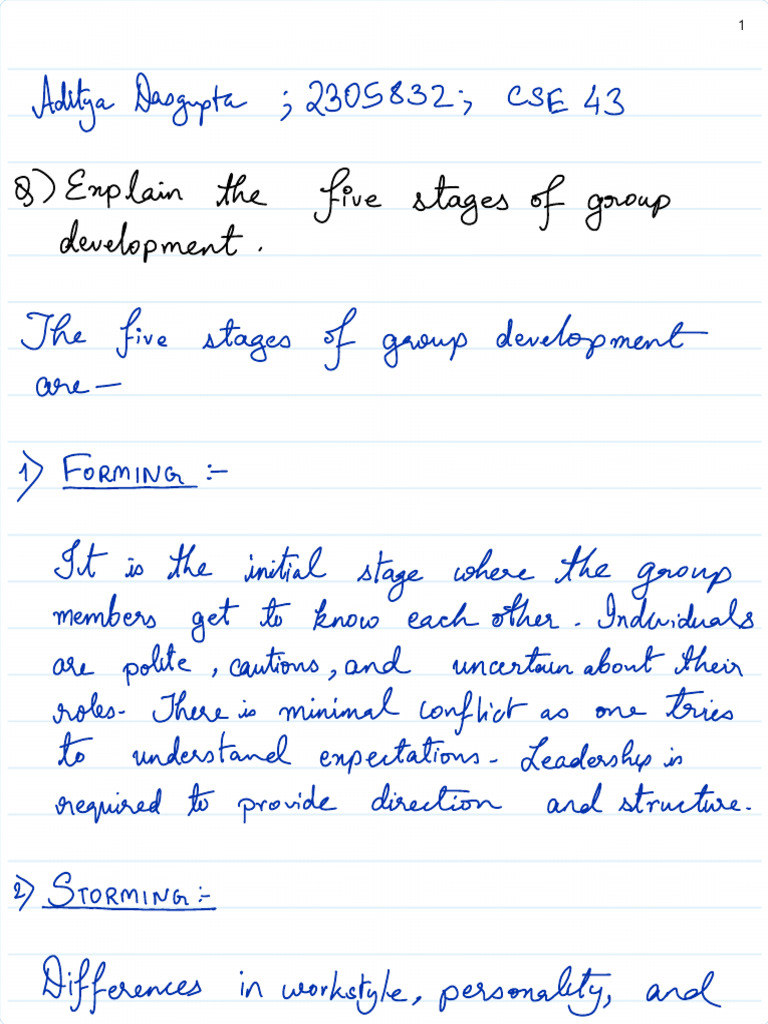 1
Aditya Dasgupta ; 2305832 ; CSE 43
Q) Explain the five stages of group
development.
The five stages of group development
are —
1) FORMING :-
It is the initial stage where the group
members get to know each other. Individuals
are polite, cautions, and uncertain about their
roles. There is minimal conflict as one tries
to understand expectations. Leadership is
required to provide direction and structure.
2) STORMING :-
Differences in workstyle, personality, and